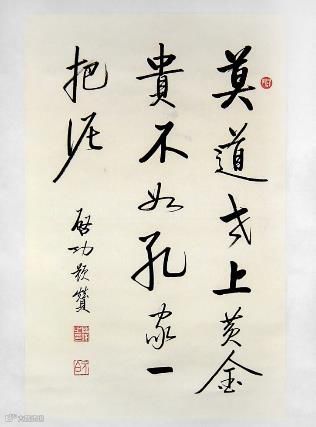 莫道世上黄金
貴不如孔家一
把泥
啓功題贊